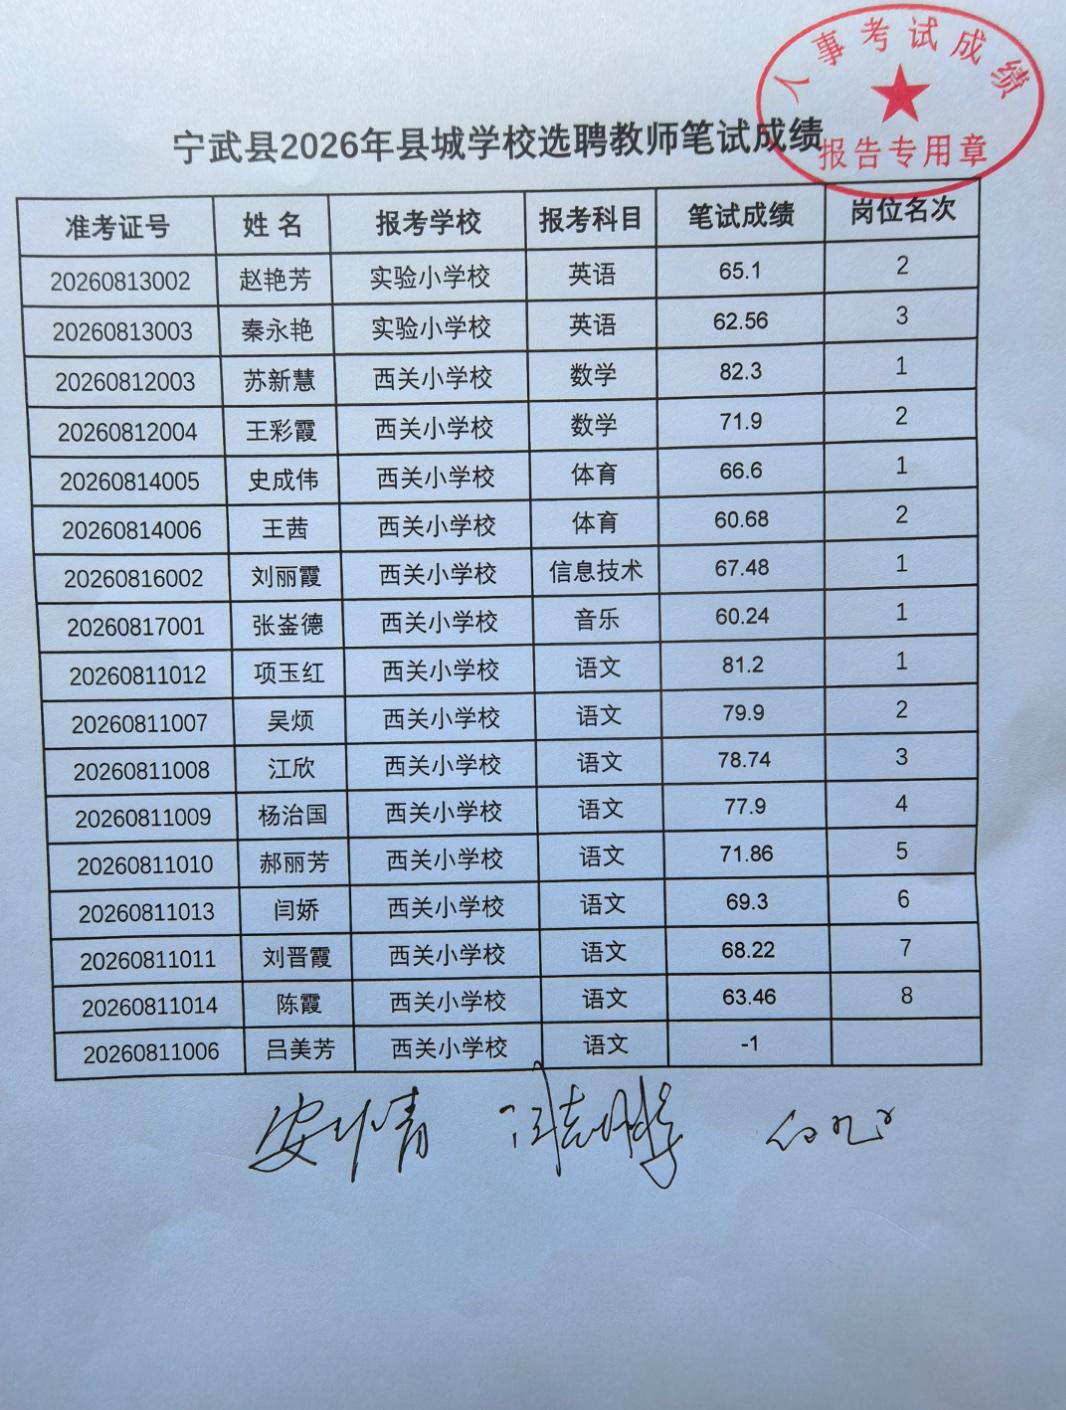 人事考试成绩
报告专用章
宁武县2026年县城学校选聘教师笔试成绩
准考证号 姓 名 报考学校 报考科目 笔试成绩 岗位名次
20260813002 赵艳芳 实验小学校 英语 65.1 2
20260813003 秦永艳 实验小学校 英语 62.56 3
20260812003 苏新慧 西关小学校 数学 82.3 1
20260812004 王彩霞 西关小学校 数学 71.9 2
20260814005 史成伟 西关小学校 体育 66.6 1
20260814006 王茜 西关小学校 体育 60.68 2
20260816002 刘丽霞 西关小学校 信息技术 67.48 1
20260817001 张崟德 西关小学校 音乐 60.24 1
20260811012 项玉红 西关小学校 语文 81.2 1
20260811007 吴烦 西关小学校 语文 79.9 2
20260811008 江欣 西关小学校 语文 78.74 3
20260811009 杨治国 西关小学校 语文 77.9 4
20260811010 郝丽芳 西关小学校 语文 71.86 5
20260811013 闫娇 西关小学校 语文 69.3 6
20260811011 刘晋霞 西关小学校 语文 68.22 7
20260811014 陈霞 西关小学校 语文 63.46 8
20260811006 吕美芳 西关小学校 语文 -1